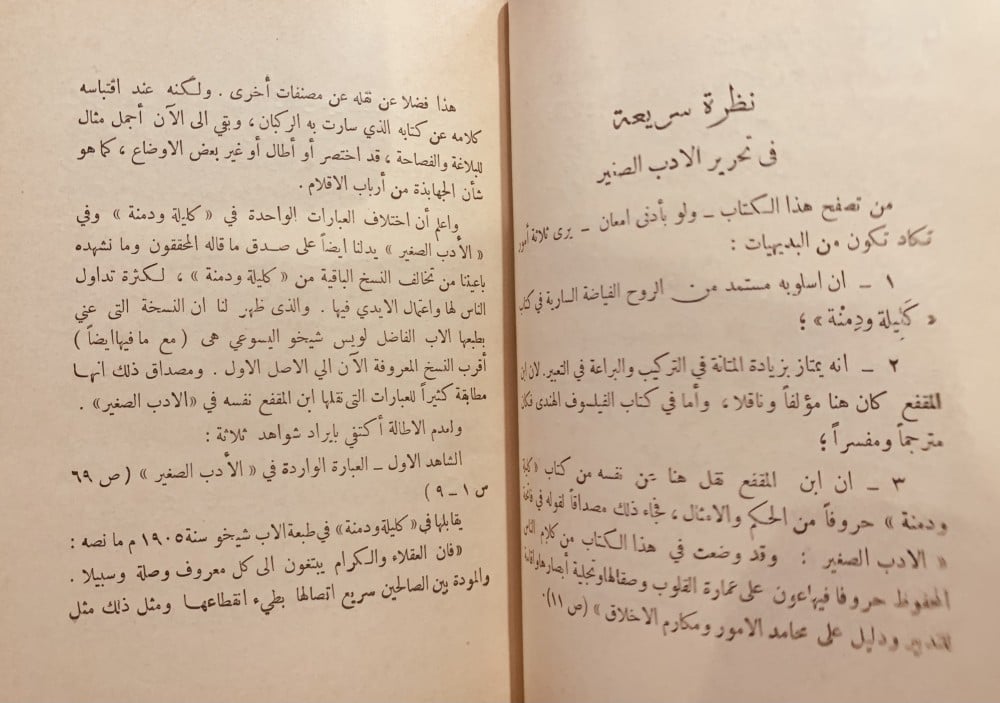 نظرة سريعة
فى تحرير الادب الصغير
من تصفح هذا الكتاب ــ ولو بأدنى امعان ــ يرى ثلاثة أمور
تكاد تكون من البديهيات :
١ ــ ان اسلوبه مستمد من الروح الفياضة السارية في كتاب
« كَلِيلة ودِمْنة » ؛
٢ ــ انه يمتاز بزيادة المتانة في التركيب والبراعة في التعبير. لان ابن
المقفع كان هنا مؤلفاً وناقلا ، وأما في كتاب الفيلسوف الهندى فكان
مترجماً ومفسراً ؛
٣ ــ ان ابن المقفع نقل هنا عن نفسه من كتاب « كليلة
ودمنة » حروفاً من الحكم والامثال ، فجاء ذلك مصداقاً لقوله في فاتحة
« الادب الصغير : وقد وضعت في هذا الكتاب من كلام الناس
المحفوظ حروفا فيها عون على عمارة القلوب وصقالها وتجلية أبصارها
للتدبير ودليل على محامد الامور ومكارم الاخلاق » (ص ١١).
هذا فضلا عن نقله عن مصنفات أخرى . ولكنه عند اقتباسه
كلامه عن كتابه الذي سارت به الركبان ، وبقي الى الآن أجمل مثال
للبلاغة والفصاحة ، قد اختصر أو أطال أو غير بعض الاوضاع ، كما هو
شأن الجهابذة من أرباب الاقلام .
واعلم أن اختلاف العبارات الواحدة في « كليلة ودمنة » وفي
« الأدب الصغير » يدلنا ايضاً على صدق ما قاله المحققون وما نشهده
باعيننا من تخالف النسخ الباقية من « كليلة ودمنة » ، لكثرة تداول
الناس لها واعتمال الايدي فيها . والذى ظهر لنا ان النسخة التى عني
بطبعها الاب الفاضل لويس شيخو اليسوعي هى ( مع ما فيها ايضاً )
أقرب النسخ المعروفة الآن الي الاصل الاول . ومصداق ذلك انها
مطابقة كثيراً للعبارات التى نقلها ابن المقفع نفسه في «الادب الصغير» .
ولعدم الاطالة أكتفي بايراد شواهد ثلاثة :
الشاهد الاول ــ العبارة الواردة في « الأدب الصغير » ( ص ٦٩
س ١ ــ ٩ )
يقابلها في « كليلة ودمنة » في طبعة الاب شيخو سنة ١٩٠٥ م ما نصه :
«فان العقلاء والكرام يبتغون الى كل معروف وصلة وسبيلا .
والمودة بين الصالحين سريع اتصالها بطيء انقطاعها ومثل ذلك مثل